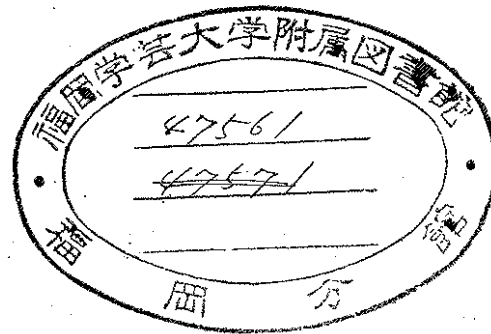 福岡学芸大学附属図書館
47561
47571
福岡分館